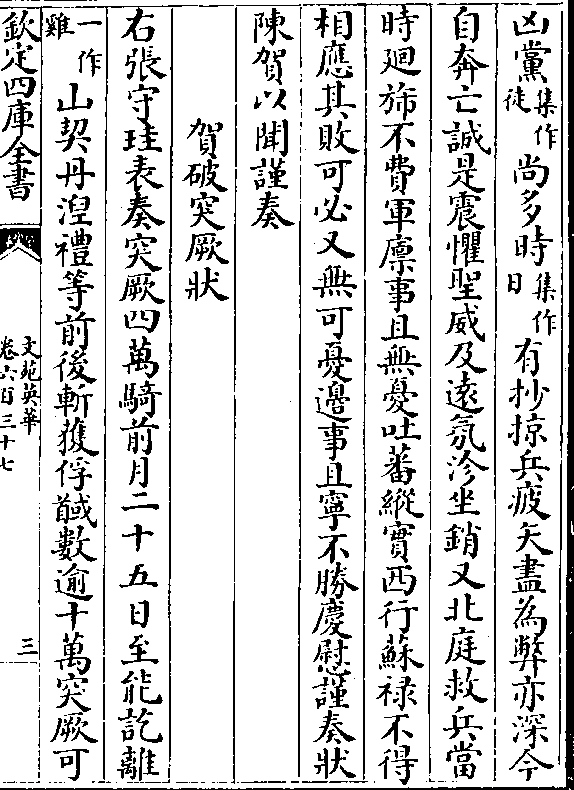 凶黨集作徒尚多時集作日有抄掠兵疲矢盡為弊亦深今
自奔亡誠是震懼聖威及逺氛沴坐銷又北庭救兵當
時廻斾不費軍廪事且無憂吐蕃縱實西行蘇禄不得
相應其敗可必又無可憂邊事且寧不勝慶慰謹奏狀
陳賀以聞謹奏
賀破突厥狀
右張守珪表奏突厥四萬騎前月二十五日至能訖離
一作雞山契丹湼禮等前後斬獲俘馘數逾十萬突厥可
欽定四庫全書
文苑英華
卷六百三十七
三